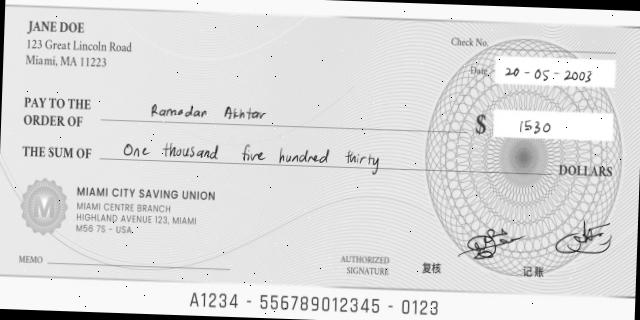 JANE DOE
123 Great Lincoln Road
Miami, MA 11223
Check No.
Date 20-05-2003
PAY TO THE
ORDER OF Ramadan Akhtar
$ 1530
THE SUM OF One thousand five hundred thirty DOLLARS
M
MIAMI CITY SAVING UNION
MIAMI CENTRE BRANCH
HIGHLAND AVENUE 123, MIAMI
M56 7S - USA.
MEMO
AUTHORIZED
SIGNATURE
复核
记账
A1234 - 556789012345 - 0123